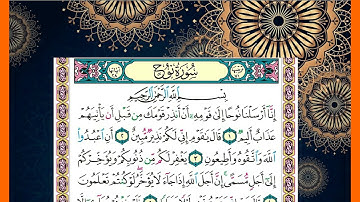 سُورَةُ نُوحٍ
بِسْمِ اللَّهِ الرَّحْمَٰنِ الرَّحِيمِ
إِنَّا أَرْسَلْنَا نُوحًا إِلَىٰ قَوْمِهِ أَنْ أَنذِرْ قَوْمَكَ مِن قَبْلِ أَن يَأْتِيَهُمْ
عَذَابٌ أَلِيمٌ ١ قَالَ يَا قَوْمِ إِنِّي لَكُمْ نَذِيرٌ مُّبِينٌ ٢ أَنِ اعْبُدُوا
اللَّهَ وَاتَّقُوهُ وَأَطِيعُونِ ٣ يَغْفِرْ لَكُم مِّن ذُنُوبِكُمْ وَيُؤَخِّرْكُمْ
إِلَىٰ أَجَلٍ مُّسَمًّى إِنَّ أَجَلَ اللَّهِ إِذَا جَاءَ لَا يُؤَخَّرُ لَوْ كُنتُمْ تَعْلَمُونَ